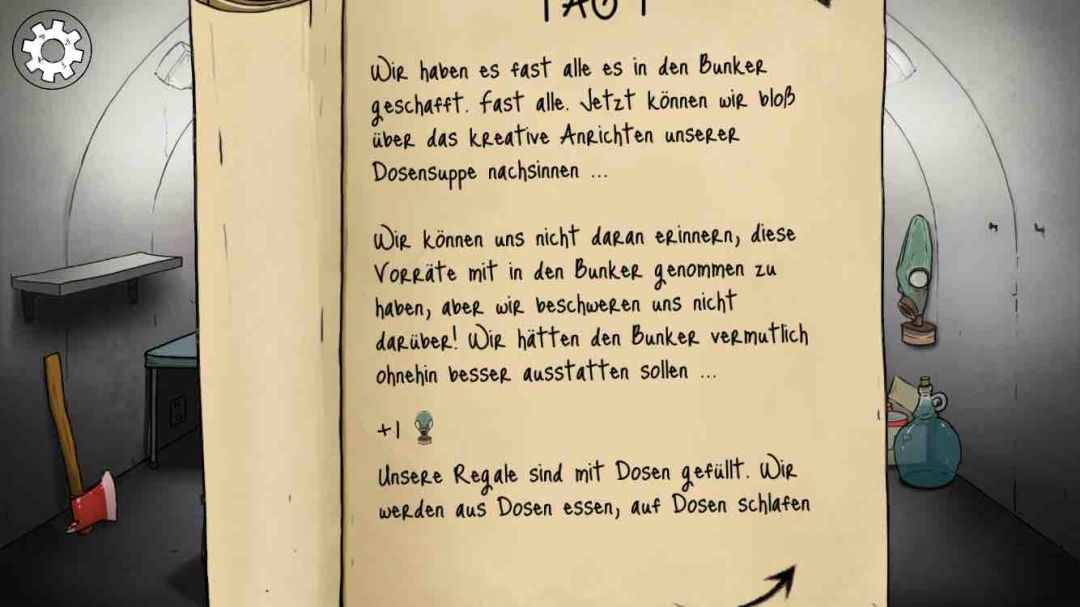 TAG 1
Wir haben es fast alle es in den Bunker
geschafft. Fast alle. Jetzt können wir bloß
über das kreative Anrichten unserer
Dosensuppe nachsinnen ...
Wir können uns nicht daran erinnern, diese
Vorräte mit in den Bunker genommen zu
haben, aber wir beschweren uns nicht
darüber! Wir hätten den Bunker vermutlich
ohnehin besser ausstatten sollen ...
+1
Unsere Regale sind mit Dosen gefüllt. Wir
werden aus Dosen essen, auf Dosen schlafen